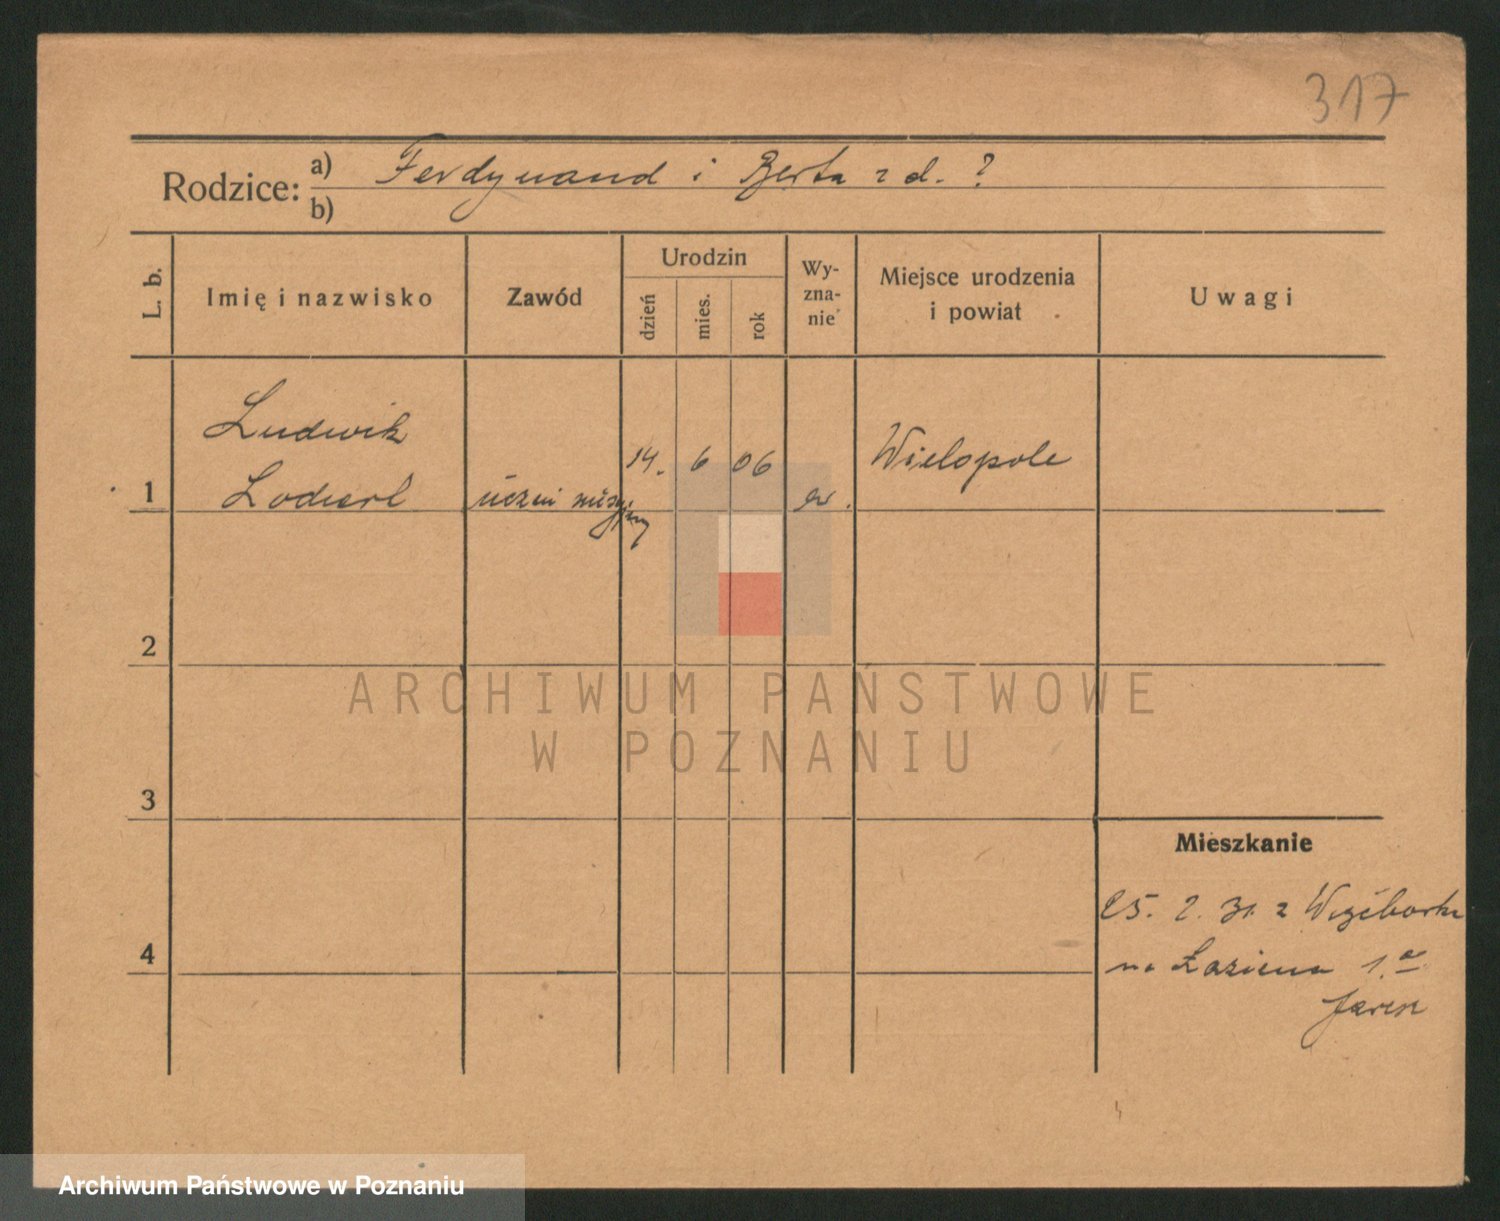 317
Rodzice: a) Ferdynand i Berta z d. ?
b)
L. b.
Imię i nazwisko
Zawód
Urodzin
dzień
mies.
rok
Wy-
zna-
nie
Miejsce urodzenia
i powiat
Uwagi
Ludwik
1
14. 6 06
Wielopole
uczeń
2
ARCHIWUM PAŃSTWOWE
W POZNANIU
3
Mieszkanie
25. 2. 31. z
4
na Łazienna 1.a
Archiwum Państwowe w Poznaniu